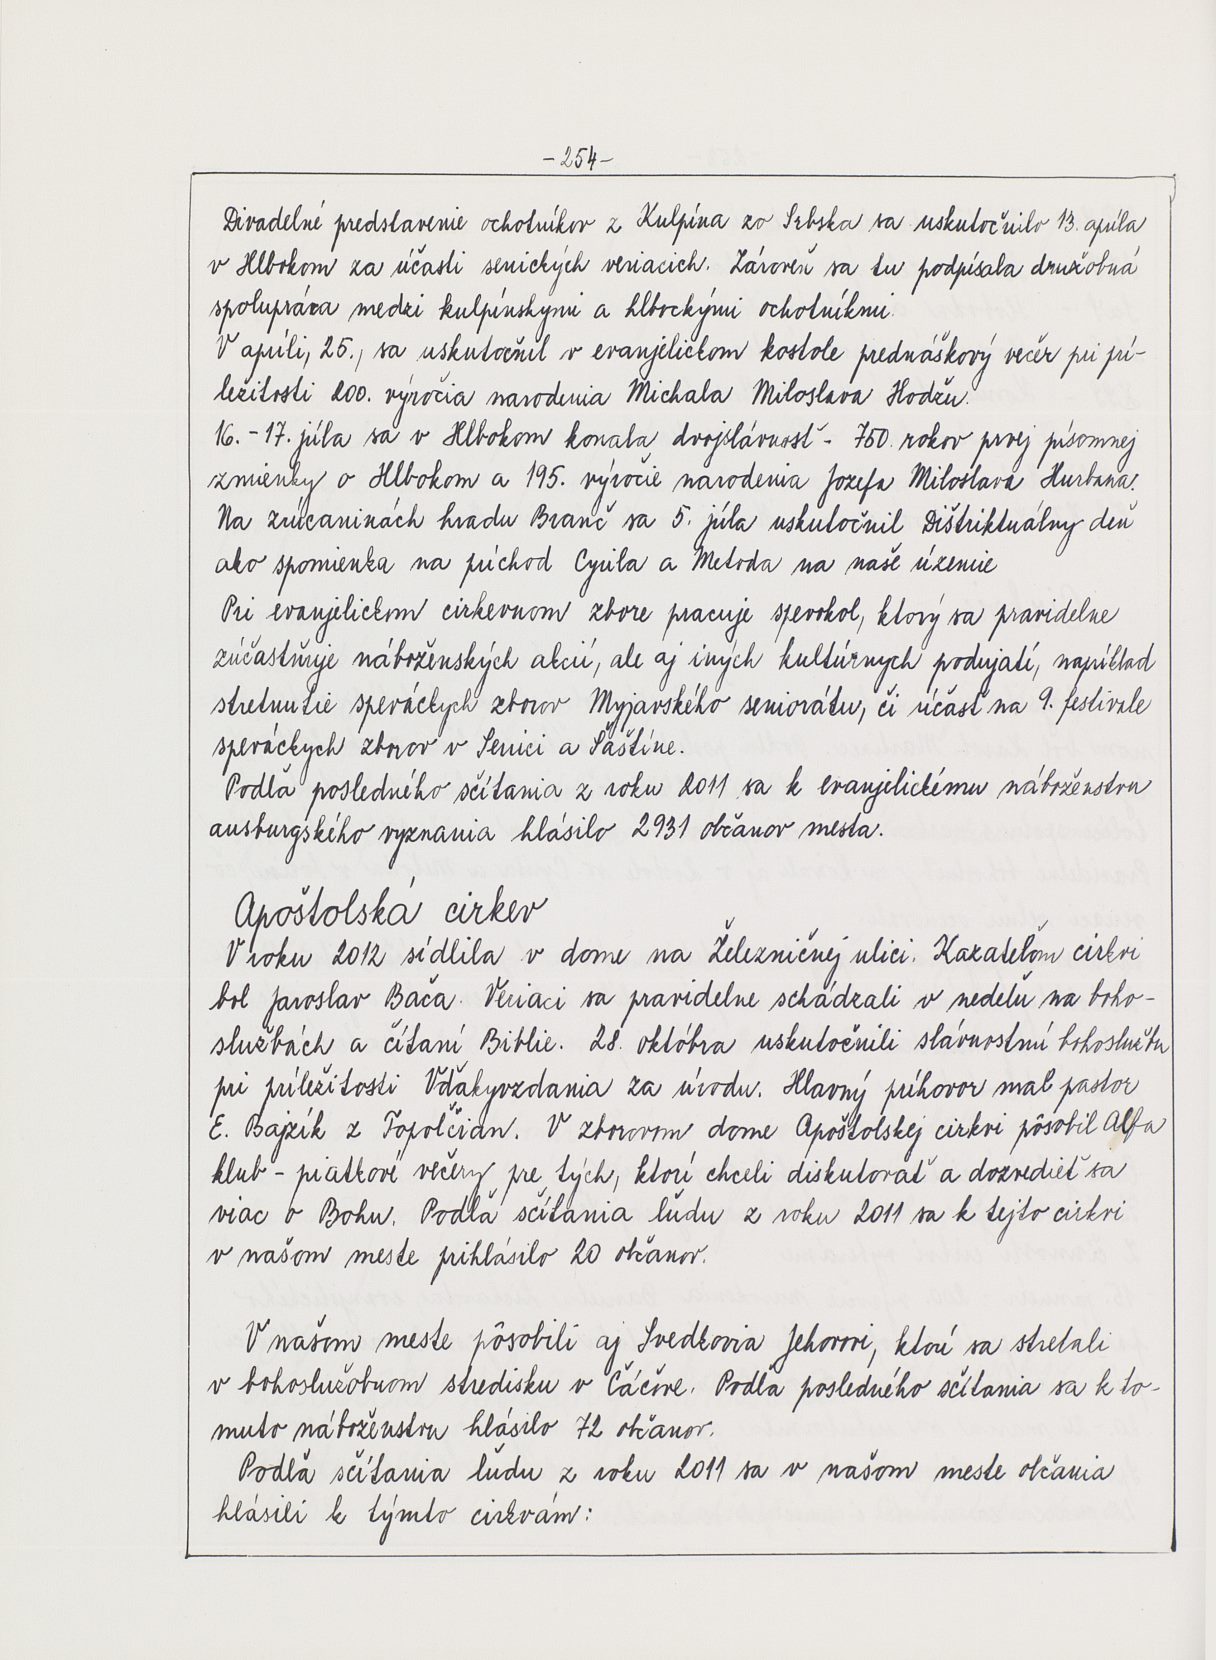 -254-
Divadelné predstavenie ochotníkov z Kulpína zo Srbska sa uskutočnilo 13. apríla
v Hlbokom za účasti senických veriacich. Zároveň sa tu podpísala družobná
spolupráca medzi kulpínskymi a hlbockými ochotníkmi.
V apríli, 25., sa uskutočnil v evanjelickom kostole prednáškový večer pri prí-
ležitosti 200. výročia narodenia Michala Miloslava Hodžu.
16. - 17. júla sa v Hlbokom konala dvojslávnosť - 750. rokov prvej písomnej
zmienky o Hlbokom a 195. výročie narodenia Jozefa Miloslava Hurbana.
Na zrúcaninách hradu Branč sa 5. júla uskutočnil Dištriktuálny deň
ako spomienka na príchod Cyrila a Metoda na naše územie
Pri evanjelickom cirkevnom zbore pracuje spevokol, ktorý sa pravidelne
zúčastňuje náboženských akcií, ale aj iných kultúrnych podujatí, napríklad
stretnutie speváckych zborov Myjavského seniorátu, či účasť na 9. festivale
speváckych zborov v Senici a Šaštíne.
Podľa posledného sčítania z roku 2011 sa k evanjelickému náboženstvu
ausburgského vyznania hlásilo 2931 občanov mesta.
Apoštolská cirkev
V roku 2012 sídlila v dome na Železničnej ulici. Kazateľom cirkvi
bol Jaroslav Bača. Veriaci sa pravidelne schádzali v nedeľu na boho-
službách a čítaní Biblie. 28. októbra uskutočnili slávnostnú bohoslužbu
pri príležitosti Vďakyvzdania za úrodu. Hlavný príhovor mal pastor
E. Bajzík z Topoľčian. V zborovom dome Apoštolskej cirkvi pôsobil Alfa
klub - piatkové večery pre tých, ktorí chceli diskutovať a dozvedieť sa
viac o Bohu. Podľa sčítania ľudu z roku 2011 sa k tejto cirkvi
v našom meste prihlásilo 20 občanov.
V našom meste pôsobili aj Svedkovia Jehovovi, ktorí sa stretali
v bohoslužobnom stredisku v Čáčove. Podľa posledného sčítania sa k to-
muto náboženstvu hlásilo 72 občanov.
Podľa sčítania ľudu z roku 2011 sa v našom meste občania
hlásili k týmto cirkvám: